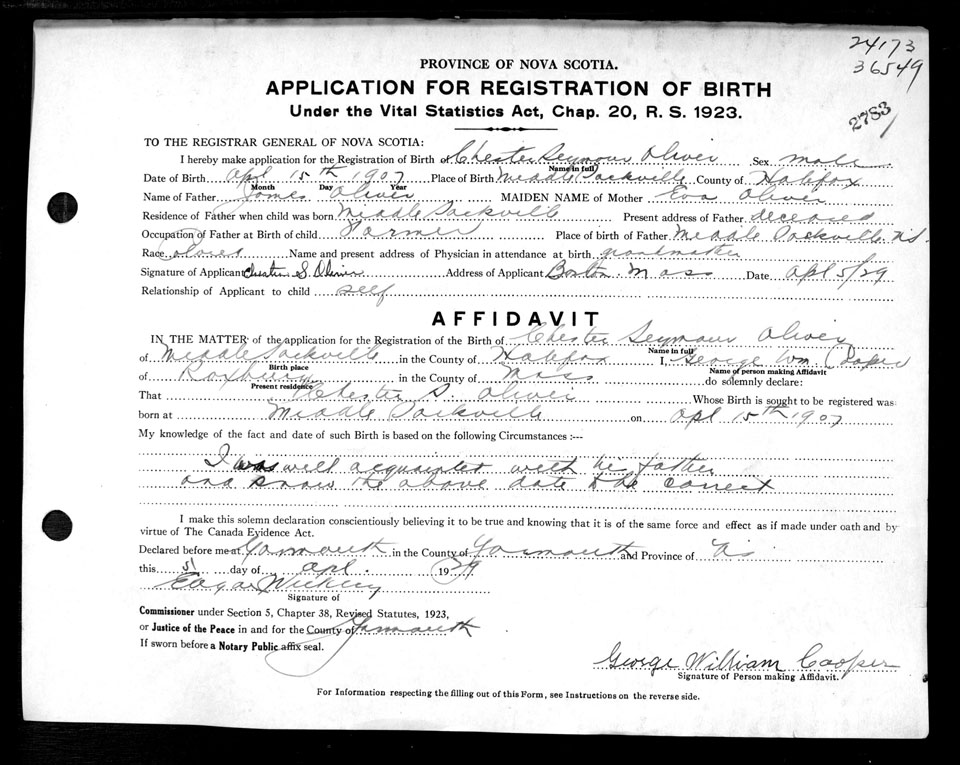 24173
36549
2783
PROVINCE OF NOVA SCOTIA.
APPLICATION FOR REGISTRATION OF BIRTH
Under the Vital Statistics Act, Chap. 20, R. S. 1923.
TO THE REGISTRAR GENERAL OF NOVA SCOTIA:
I hereby make application for the Registration of Birth of Chester Seymour Oliver Sex male
Name in full
Date of Birth Apl 15th 1907 Place of Birth Middle Sackville County of Halifax
Month Day Year
Name of Father James Oliver MAIDEN NAME of Mother Eva Oliver
Residence of Father when child was born Middle Sackville Present address of Father deceased
Occupation of Father at Birth of child Farmer Place of birth of Father Middle Sackville N.S.
Race Colored Name and present address of Physician in attendance at birth grandmother
Signature of Applicant Chester S. Oliver Address of Applicant Boston Mass Date Apl 5/29
Relationship of Applicant to child self
AFFIDAVIT
IN THE MATTER of the application for the Registration of the Birth of Chester Seymour Oliver
Name in full
of Middle Sackville in the County of Halifax I, George Wm Cooper
Birth place Name of person making Affidavit
of Roxbury in the County of Mass do solemnly declare:
Present residence
That Chester S. Oliver Whose Birth is sought to be registered was
born at Middle Sackville on Apl 15th 1907
My knowledge of the fact and date of such Birth is based on the following Circumstances :---
I was well acquainted with his father
and know the above date to be correct
I make this solemn declaration conscientiously believing it to be true and knowing that it is of the same force and effect as if made under oath and by
virtue of The Canada Evidence Act.
Declared before me at Yarmouth in the County of Yarmouth and Province of N.S.
this 5 day of Apl. 1929
Edgar
Signature of
Commissioner under Section 5, Chapter 38, Revised Statutes, 1923,
or Justice of the Peace in and for the County of Yarmouth
If sworn before a Notary Public affix seal.
George William Cooper
Signature of Person making Affidavit.
For Information respecting the filling out of this Form, see Instructions on the reverse side.